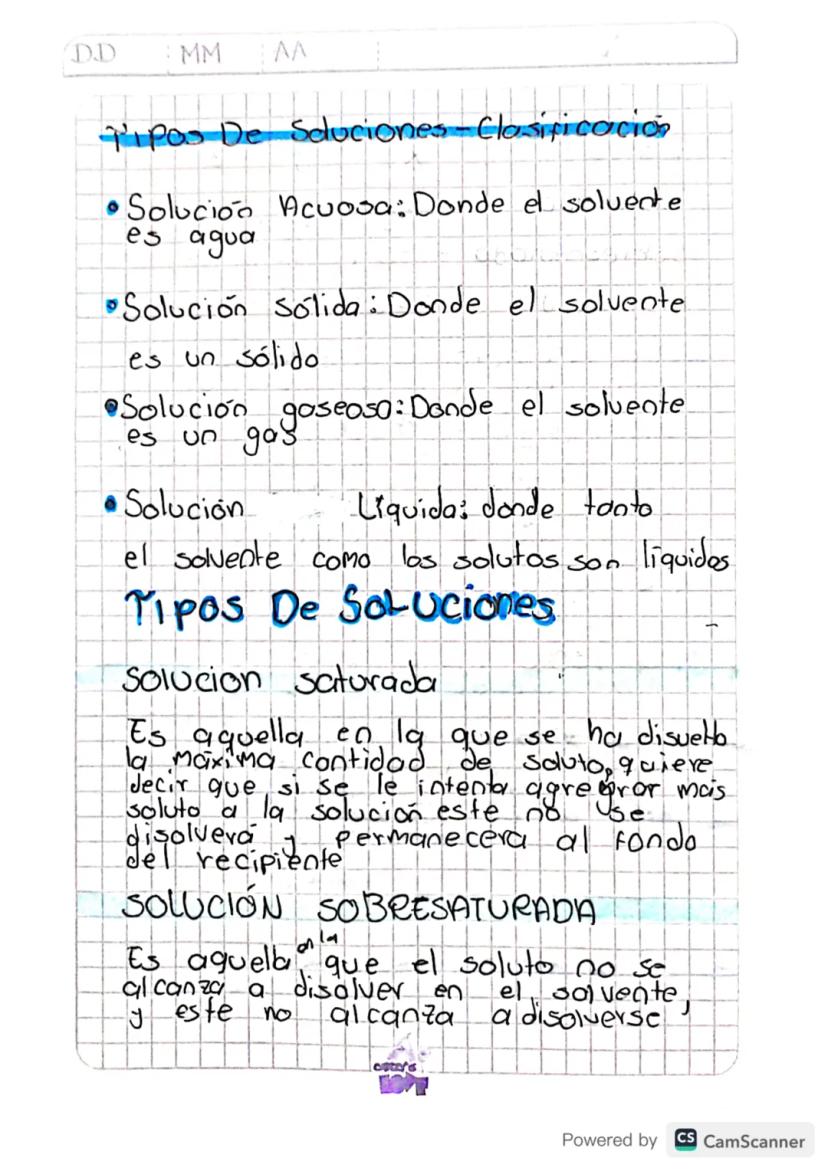 DD MM AA
Tipos De Soluciones - Clasificación
• Solución Acuosa: Donde el solvente
es agua
• Solución Sólida: Donde el solvente
es un sólido
• Solución gaseosa: Donde el solvente
es un gas
• Solución Líquida: donde tanto
el solvente como los solutos son líquidos
Tipos De Soluciones
Solucion saturada
Es aquella en la que se ha disuelto
la máxima cantidad de soluto, quiere
decir que si se le intenta agregrar más
soluto a la solución este no se
disolverá y permanecerá al fondo
del recipiente
SOLUCIÓN SOBRESATURADA
Es aquella en la que el soluto no se
alcanza a disolver en el solvente,
y este no alcanza a disolverse
Powered by CS CamScanner